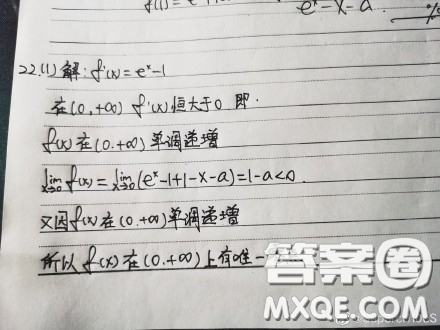 f(1) =
e^x-x-a
22.(1)解:f'(x)=e^x-1
在(0,+∞) f'(x)恒大于0 即.
f(x)在(0.+∞)单调递增
lim x→0 f(x)=lim x→0 (e^x-1+1-x-a)=1-a<0.
又因f(x)在(0.+∞)单调递增
所以f(x)在(0.+∞)上有唯一
答案圈
MXQE.COM